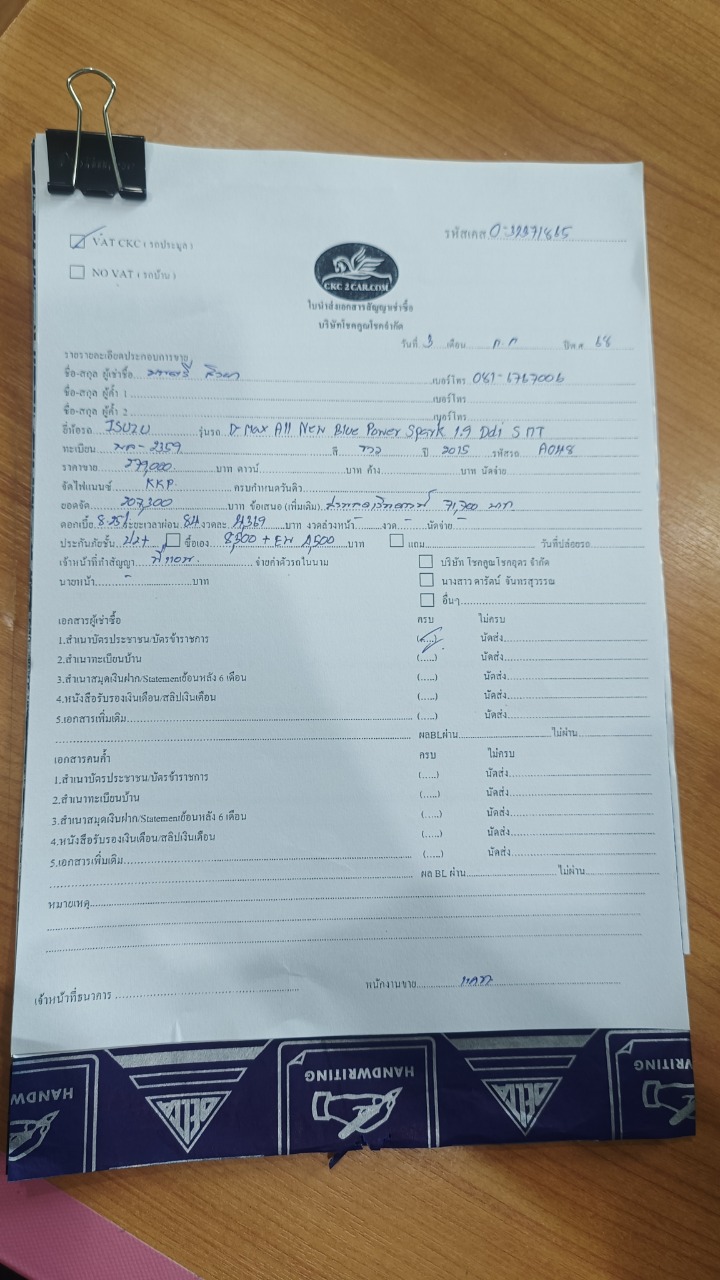 VAT CKC ( รถประมูล )
รหัสเคส
NO VAT ( รถบ้าน )
CKC 2 CAR.COM
ใบนำส่งเอกสารสัญญาเช่าซื้อ
บริษัทโชคคูณโชคจำกัด
วันที่ 3 เดือน ต.ค ปีพ.ศ. 68
รายรายละเอียดประกอบการขาย
ชื่อ-สกุล ผู้เช่าซื้อ เบอร์โทร 081-6767006
ชื่อ-สกุล ผู้ค้ำ 1 เบอร์โทร
ชื่อ-สกุล ผู้ค้ำ 2 เบอร์โทร
ยี่ห้อรถ ISUZU รุ่นรถ D-Max All New Blue Power Spark 1.9 Ddi S MT
ทะเบียน 2359 สี ขาว ปี 2015 รหัสรถ A048
ราคาขาย 279,000 บาท ดาวน์ บาท ค้าง บาท นัดจ่าย
จัดไฟแนนซ์ KKP ครบกำหนดวันดิว
ยอดจัด 207,300 บาท ข้อเสนอ (เพิ่มเติม) 71,700 บาท
ดอกเบี้ย ระยะเวลาผ่อน 84 งวดละ บาท งวดล่วงหน้า - งวด - นัดจ่าย -
ประกันภัยชั้น 2+ ซื้อเอง 8,500 + EW 2,500 บาท แถม วันที่ปล่อยรถ
เจ้าหน้าที่ทำสัญญา จ่ายค่าตัวรถในนาม บริษัท โชคคูณโชคอุดร จำกัด
นายหน้า - บาท นางสาว ดารัตน์ จันทรสุวรรณ
อื่นๆ
เอกสารผู้เช่าซื้อ ครบ ไม่ครบ
1.สำเนาบัตรประชาชน/บัตรข้าราชการ นัดส่ง
2.สำเนาทะเบียนบ้าน (.....) นัดส่ง
3.สำเนาสมุดเงินฝาก/Statementย้อนหลัง 6 เดือน (.....) นัดส่ง
4.หนังสือรับรองเงินเดือน/สลิปเงินเดือน (.....) นัดส่ง
5.เอกสารเพิ่มเติม (.....) นัดส่ง
ผลBLผ่าน ไม่ผ่าน
เอกสารคนค้ำ ครบ ไม่ครบ
1.สำเนาบัตรประชาชน/บัตรข้าราชการ (.....) นัดส่ง
2.สำเนาทะเบียนบ้าน (.....) นัดส่ง
3.สำเนาสมุดเงินฝาก/Statementย้อนหลัง 6 เดือน (.....) นัดส่ง
4.หนังสือรับรองเงินเดือน/สลิปเงินเดือน (.....) นัดส่ง
5.เอกสารเพิ่มเติม (.....) นัดส่ง
ผล BL ผ่าน ไม่ผ่าน
หมายเหตุ
เจ้าหน้าที่ธนาคาร พนักงานขาย
HANDWRITING DELTA HANDWRITING DELTA HANDWRITING